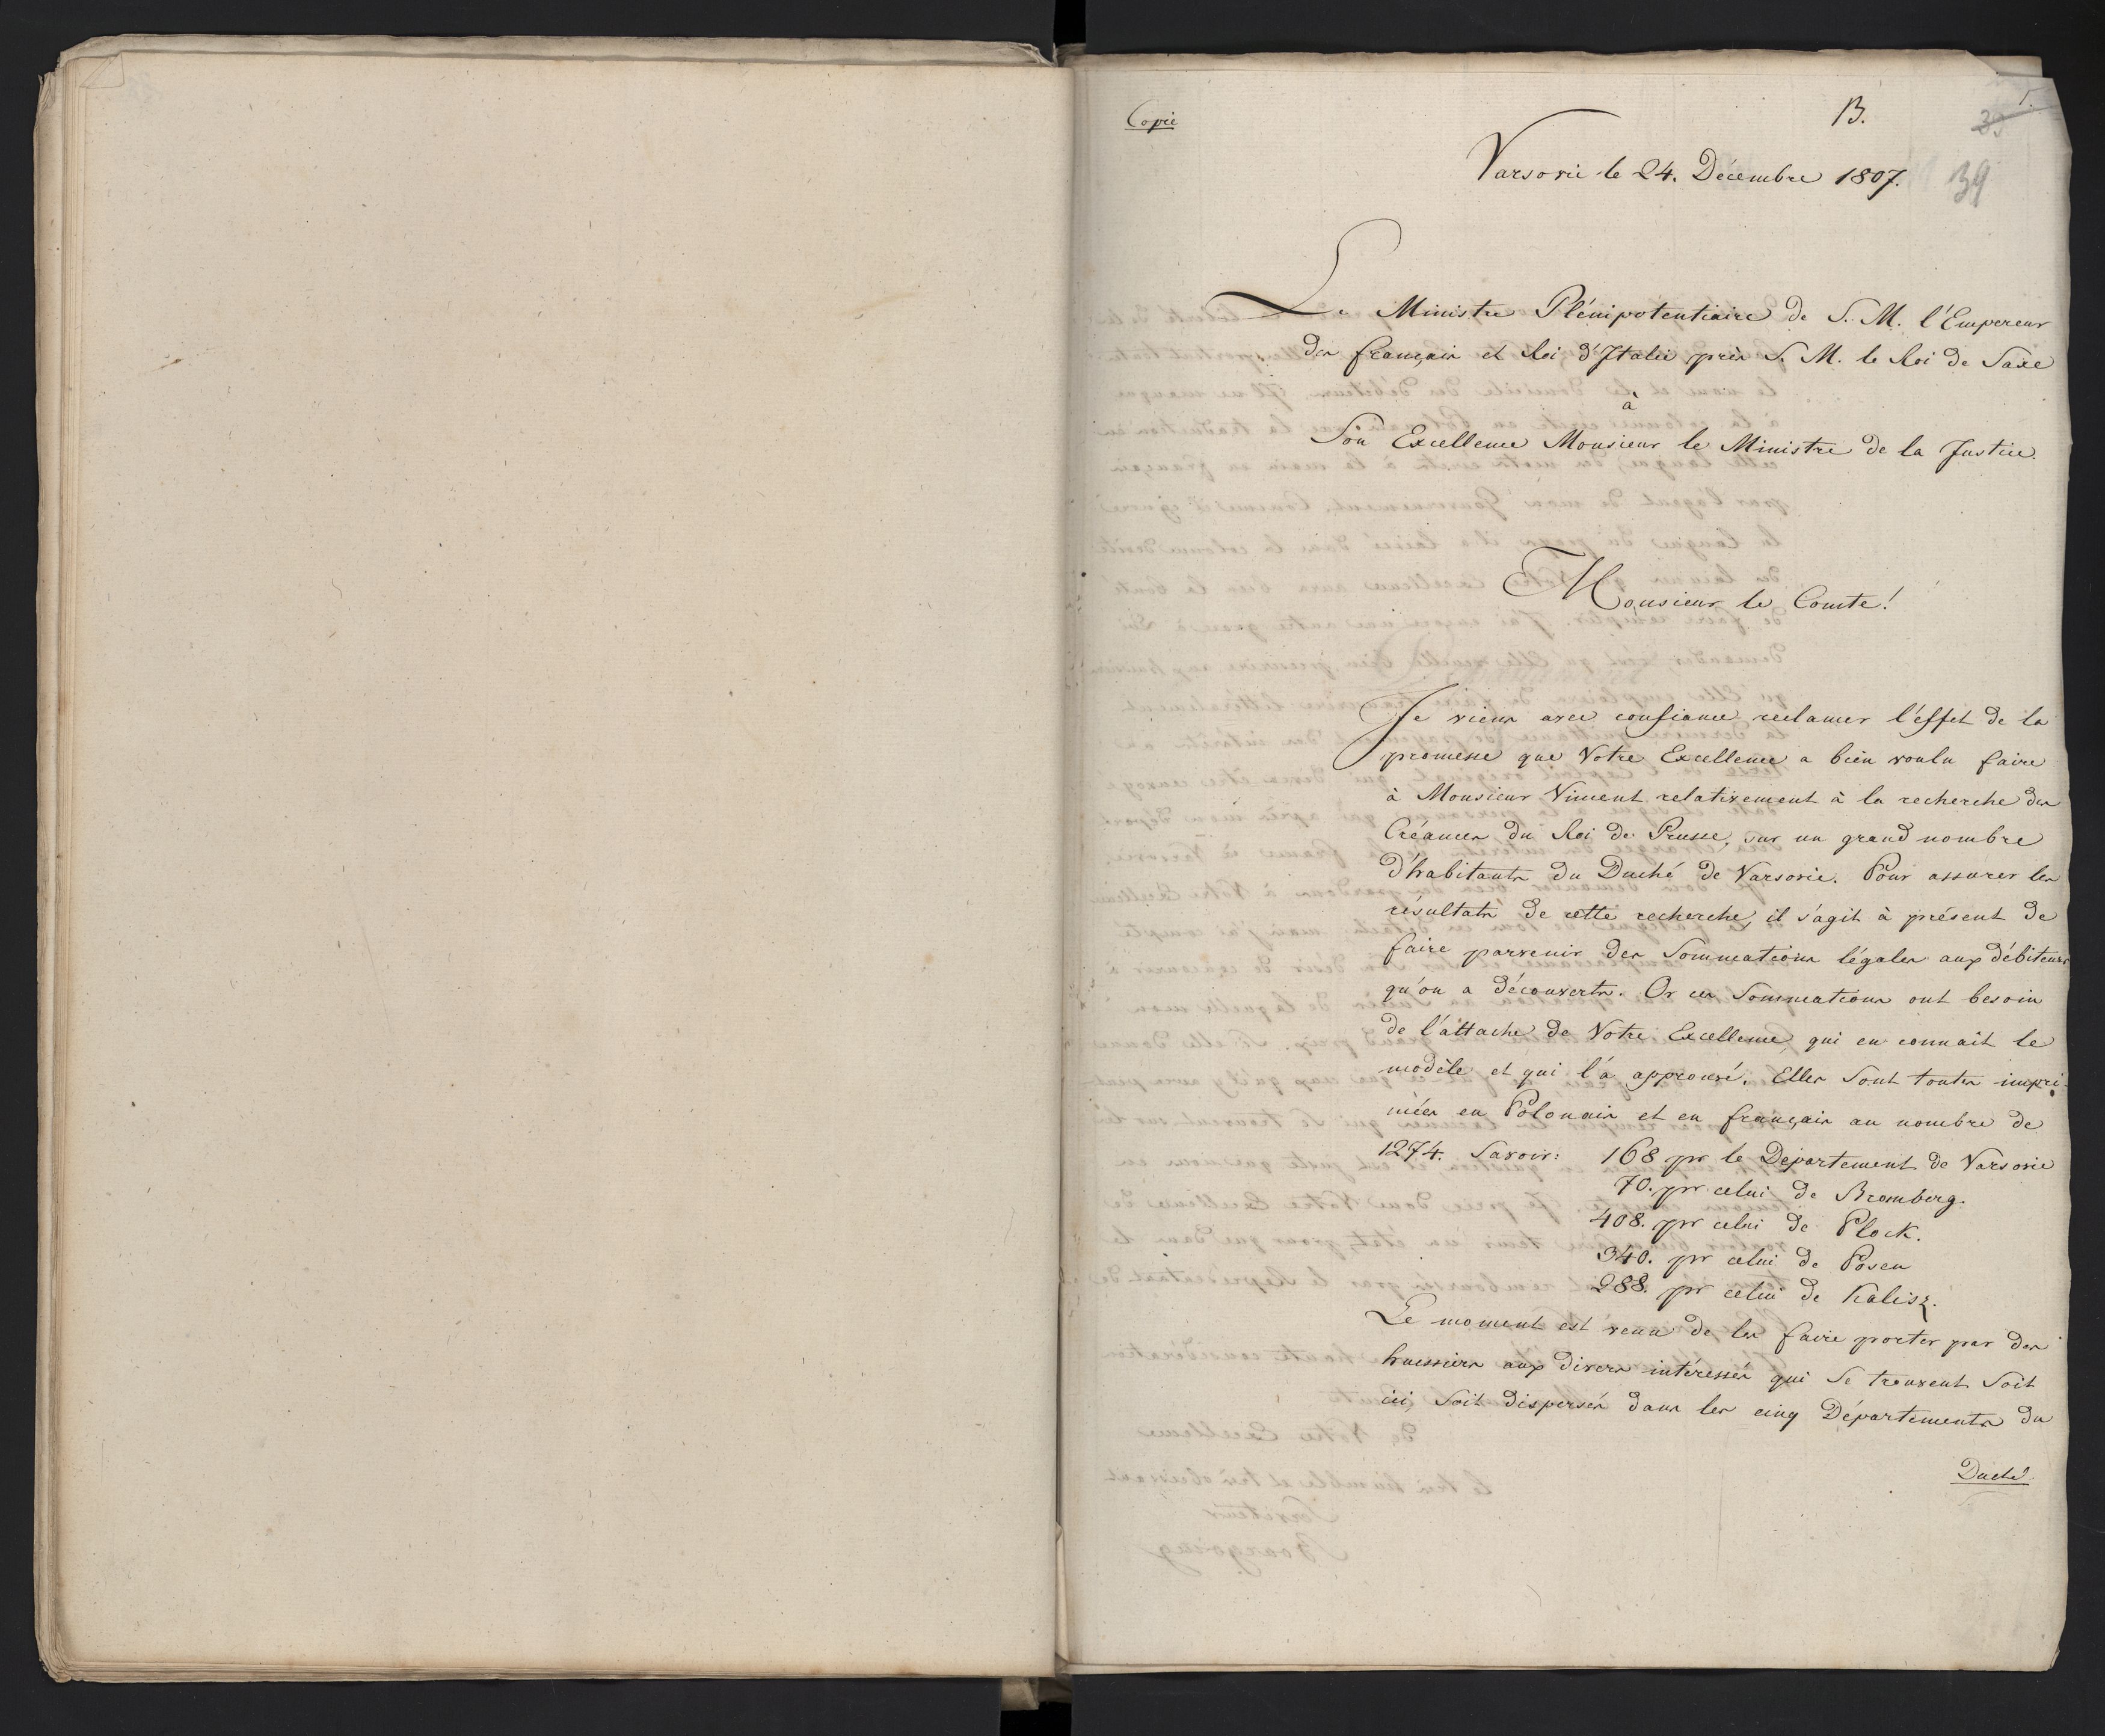 Copie
B.
1.
39
Varsovie le 24. Décembre 1807.
39
Le Ministre Plénipotentiaire de S. M. l'Empereur
des français et Roi d'Italie près S. M. le Roi de Saxe
à
Son Excellence Monsieur le Ministre de la Justice.
Monsieur le Comte!
Je viens avec confiance reclamer l'effet de la
promesse que Votre Excellence a bien voulu faire
à Monsieur Viment relativement à la recherche des
Créances du Roi de Prusse, sur un grand nombre
d'habitants du Duché de Varsovie. Pour assurer les
résultats de cette recherche, il s'agit à présent de
faire parvenir des Sommations légales aux débiteurs
qu'on a découverts. Or ces Sommations ont besoin
de l'attache de Votre Excellence, qui en connaît le
modèle et qui l'a approuvé. Elles sont toutes impri-
mées en Polonais et en français au nombre de
1274. Savoir: 168 pr le Département de Varsovie
70. pr celui de Bromberg.
408. pr celui de Plock.
340. pr celui de Posen
288. pr celui de Kalisz.
Le moment est venu de les faire porter par des
huissiers aux divers intéressés qui se trouvent soit
ici, soit dispersés dans les cinq Départements du
Duché